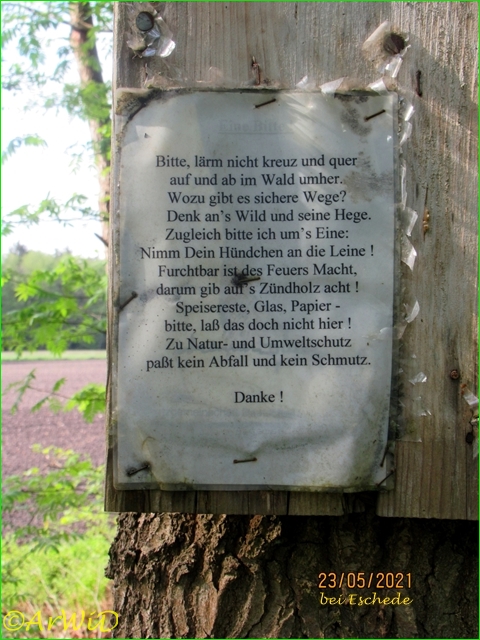 Bitte, lärm nicht kreuz und quer
auf und ab im Wald umher.
Wozu gibt es sichere Wege?
Denk an's Wild und seine Hege.
Zugleich bitte ich um's Eine:
Nimm Dein Hündchen an die Leine !
Furchtbar ist des Feuers Macht,
darum gib auf's Zündholz acht !
Speisereste, Glas, Papier -
bitte, laß das doch nicht hier !
Zu Natur- und Umweltschutz
paßt kein Abfall und kein Schmutz.
Danke !
23/05/2021
bei Eschede
©ArWiD